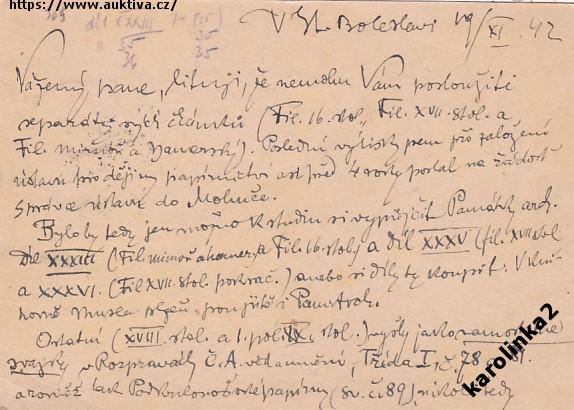 https://www.auktiva.cz/
díl XXXIII
35
36
35
35
V St. Boleslavi 19/XI. 42
Vážený pane, lituji, že nemohu Vám posloužiti
separáty svých článků (Fil. 16. stol., Fil. XVII. stol. a
Fil. Poslední výtisky jsem při založení
ústavu pro dějiny papírnictví asi před 4 roky poslal na žádost
správce ústavu do Mohuče.
Bylo by tedy jen možno k studiu si vypůjčit Památky arch.
díl XXXIII (Fil. a Fil. 16. stol.) a díl XXXV (fil. XVII. stol
a XXXVI. (Fil XVII. stol. pokrač.) anebo si díly ty koupit. V
musea jsou jistě i Pam. Arch.
Ostatní (XVIII. stol. a 1. pol. IX. stol.) vyšly jako samostatné
svazky v Rozpravách Č. A. věd a umění, Třída I, č. 78 a
a rovněž tak papírny (sv. č. 89), nikoli tedy
karolinka2